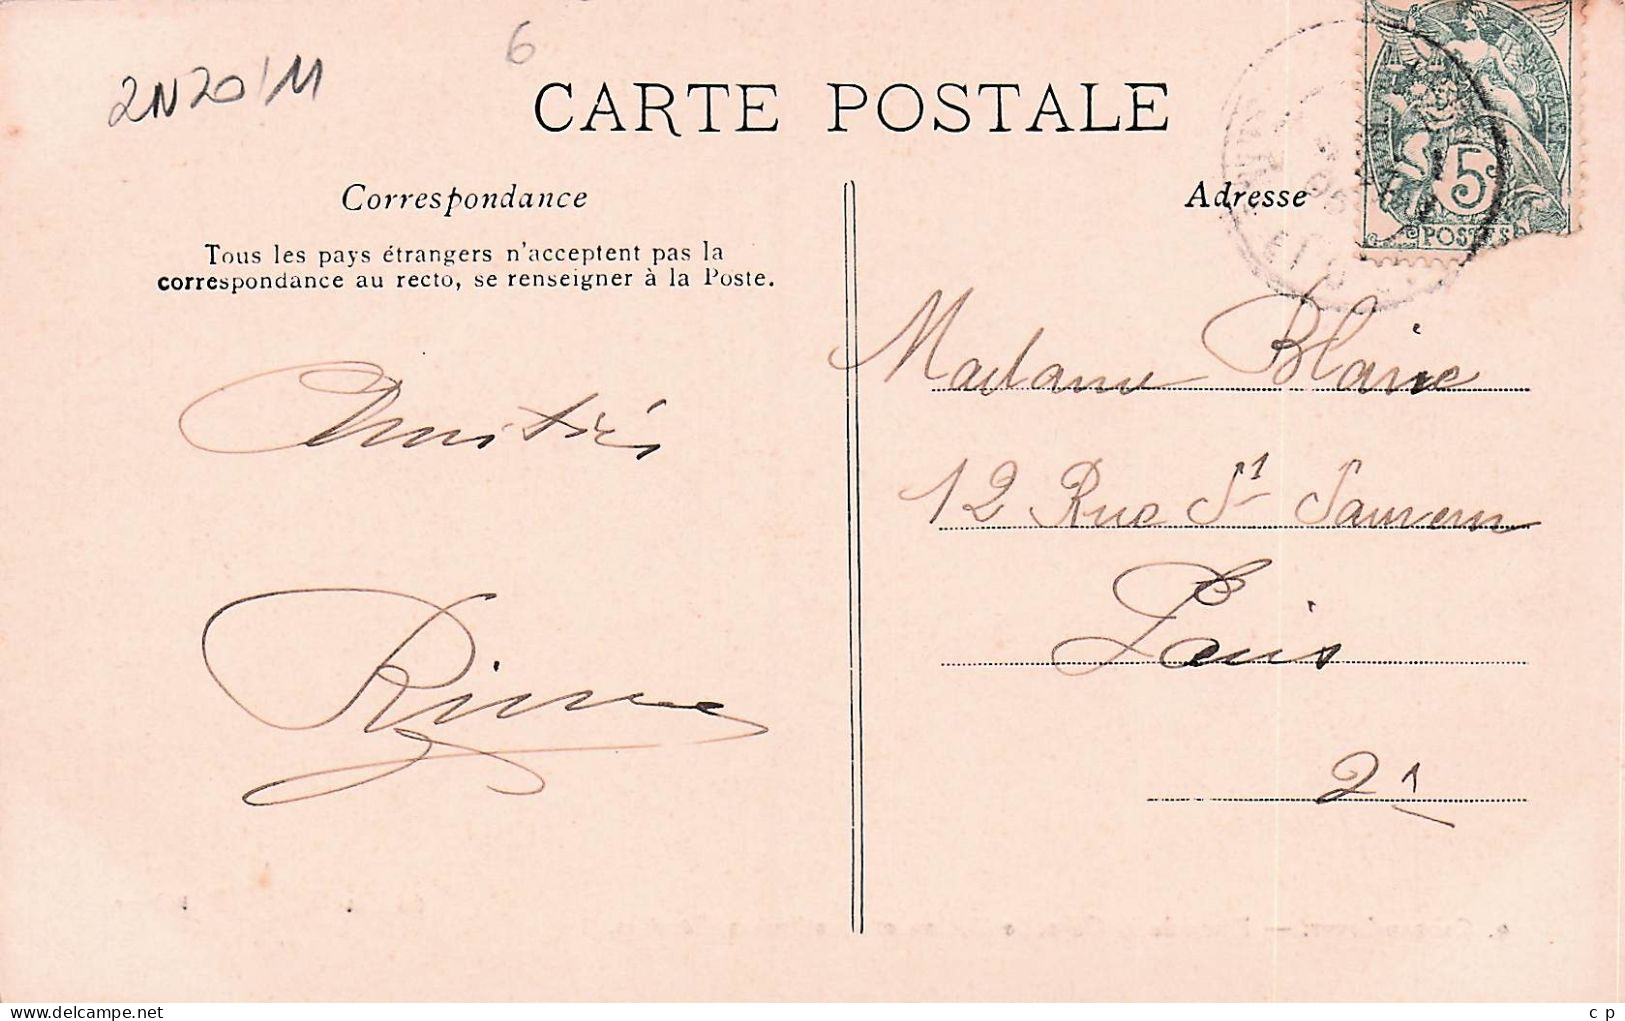 2N20/11
6
CARTE POSTALE
Correspondance
Adresse
Tous les pays étrangers n'acceptent pas la
correspondance au recto, se renseigner à la Poste.
5c
POSTES
Amitiés
Madame Blaise
12 Rue St Sauveur
Paris
2e
delcampe.net
c p